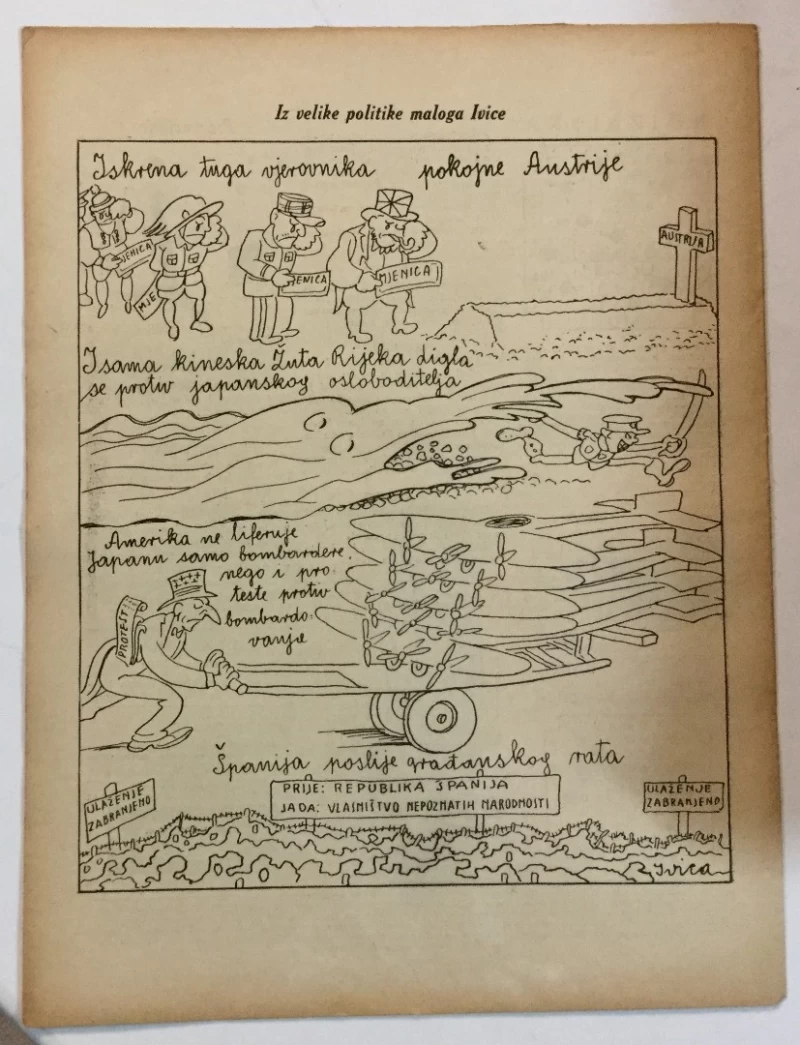 Iz velike politike maloga Ivice
Iskrena tuga vjerovnika pokojne Austrije
JENICA
MJE
JENICA
MJENICA
AUSTRIJA
I sama kineska Žuta Rijeka digla
se protiv japanskog osloboditelja
Amerika ne liferuje
Japanu samo bombardere
nego i pro-
teste protiv
bombardo-
vanja
PROTEST
Španija poslije građanskog rata
ULAŽENJE
ZABRANJENO
PRIJE: REPUBLIKA ŠPANIJA
SADA: VLASNIŠTVO NEPOZNATIH NARODNOSTI
ULAŽENJE
ZABRANJENO
Ivica